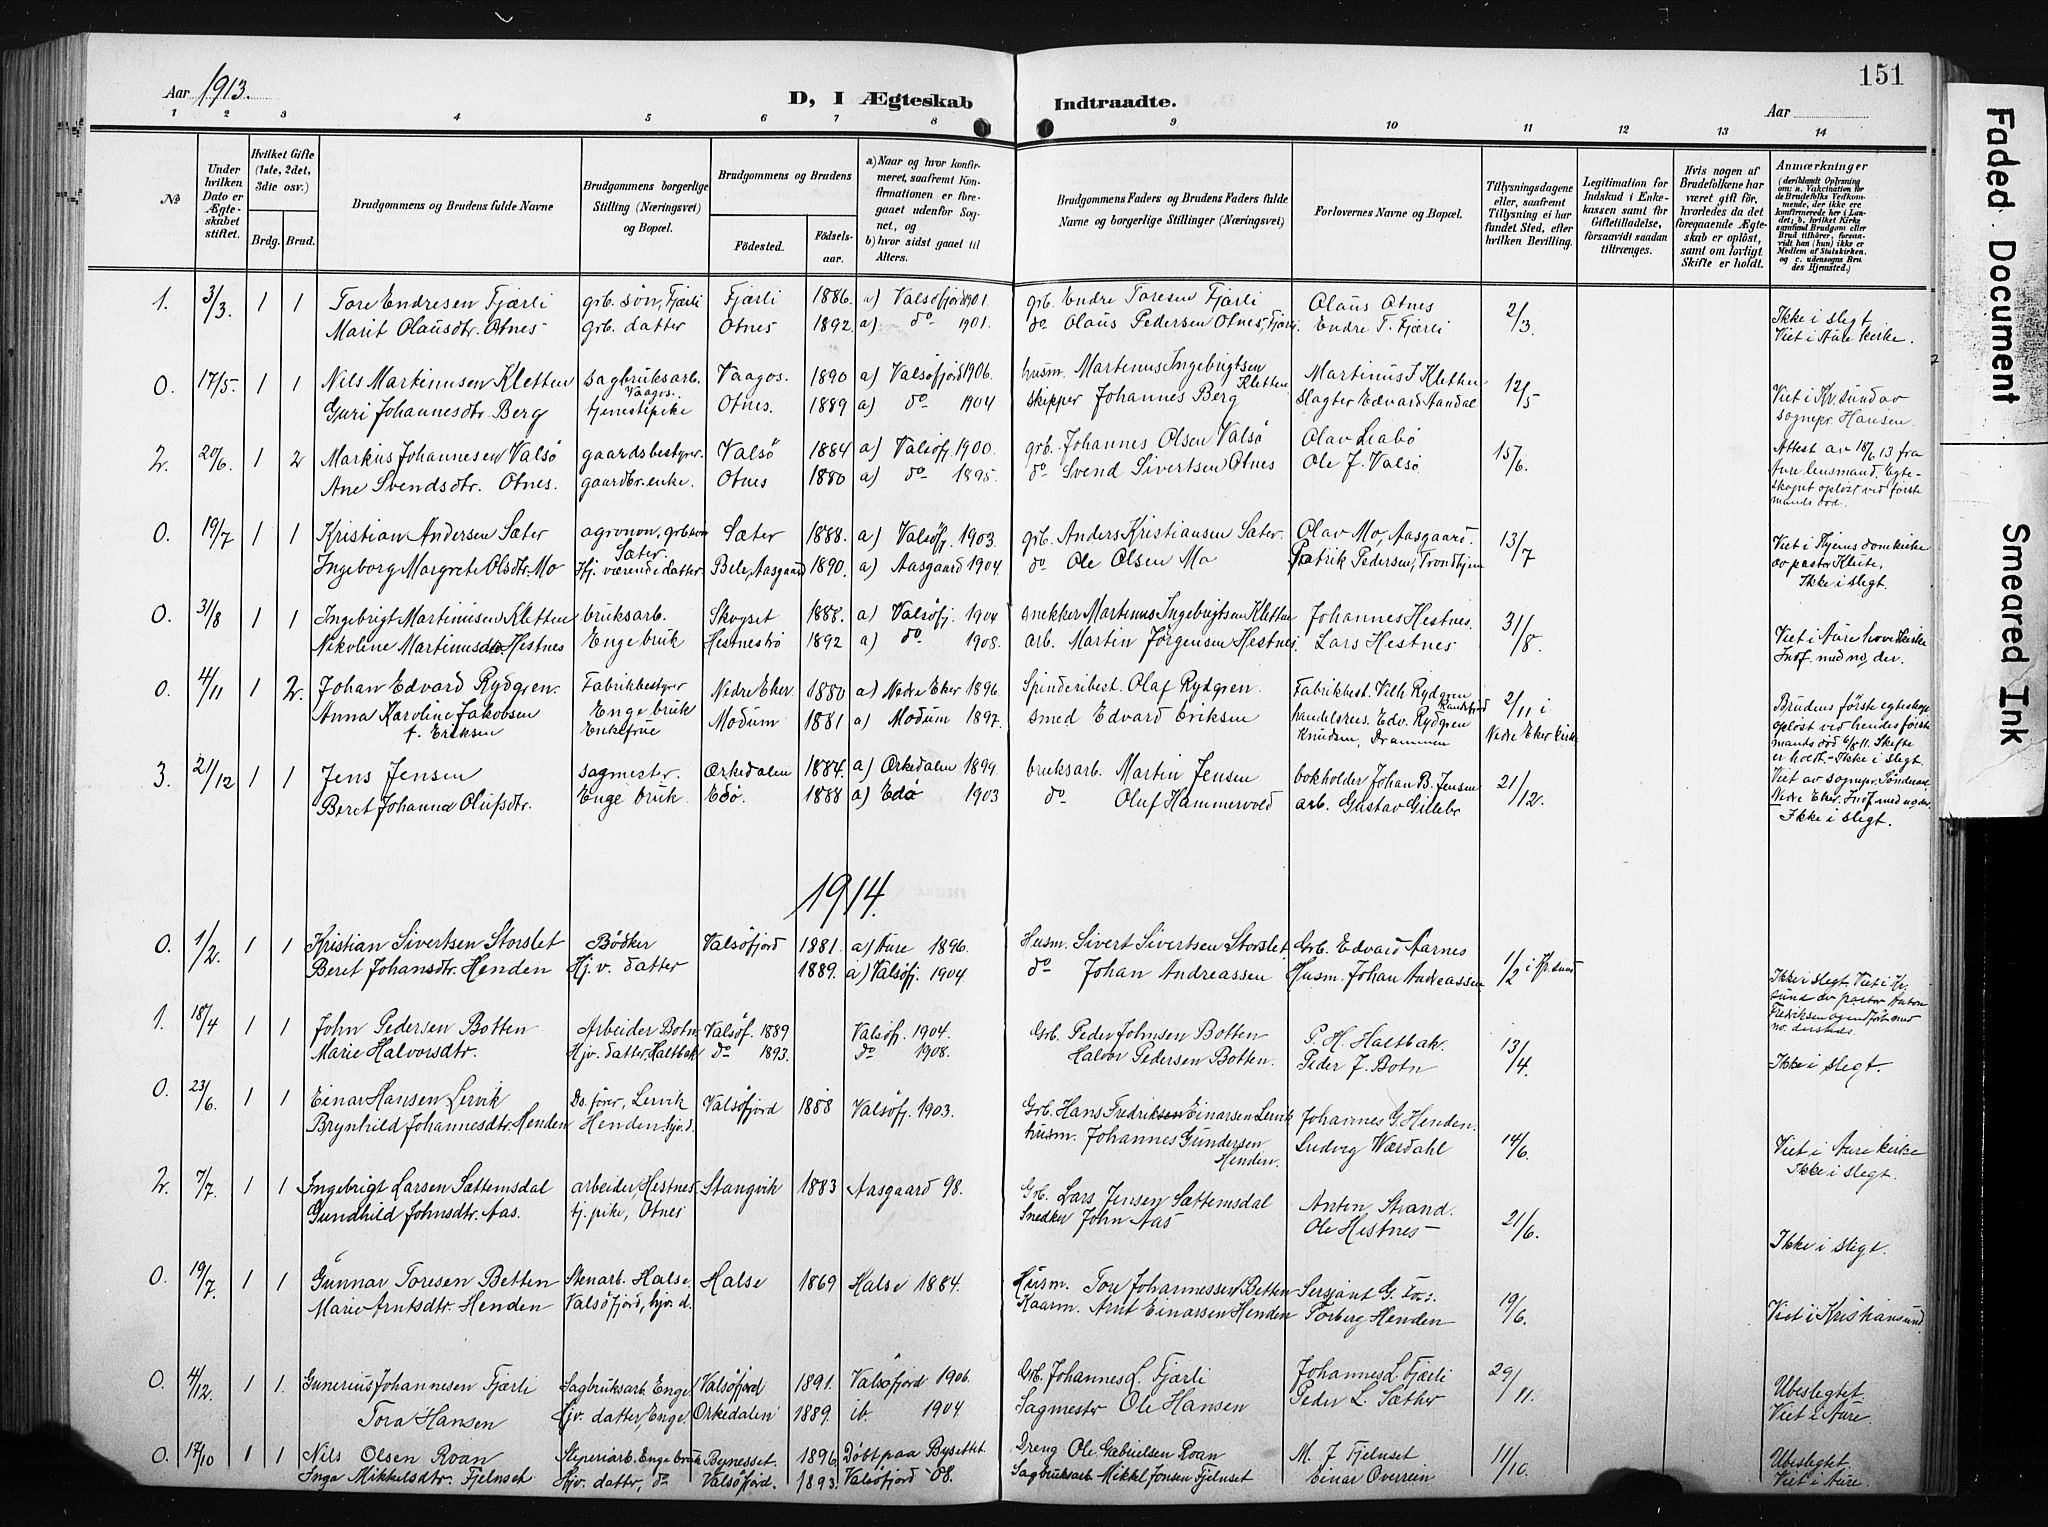 151
Aar 1913.
D, I Ægteskab Indtraadte.
Aar
1 2 3 4 5 6 7 8 9 10 11 12 13 14
No
Under hvilken Dato er Ægteskabet stiftet.
Hvilket Gifte (1ste, 2det, 3die osv.)
Brdg. Brud.
Brudgommens og Brudens fulde Navne
Brudgommens borgerlige Stilling (Næringsvei) og Bopæl.
Brudgommens og Brudens
Fødested. Fødselsaar.
a) Naar og hvor konfirmeret, saafremt Konfirmationen er foregaaet udenfor Sognet, og
b) hvor sidst gaaet til Alters.
Brudgommens Faders og Brudens Faders fulde Navne og borgerlige Stillinger (Næringsvei)
Forlovernes Navne og Bopæl.
Tillysningsdagene eller, saafremt Tillysning ei har fundet Sted, efter hvilken Bevilling.
Legitimation for Indskud i Enkekassen samt for Giftetilladelse, forsaavidt saadan tiltrænges.
Hvis nogen af Brudefolkene har været gift før, hvorledes da det foregaaende Ægteskab er opløst, samt om lovligt Skifte er holdt.
Anmærkninger
(deriblandt Oplysning om: a. Vakcination for de Brudefolks Vedkommende, der ikke ere konfirmerede her i Landet; b. hvilket Kirkesamfund Brudgom eller Brud tilhører, forsaavidt han (hun) ikke er Medlem af Statskirken, og c. udensogns Brudes Hjemsted.)
1. 3/3. 1 1 Tore Endresen Fjærli grb. søn, Fjærli Fjærli 1886. a) Valsøfjord 1901. grb. Endre Toresen Fjærli Olaus Otnes 2/3
Marit Olausdtr. Otnes grb. datter Otnes 1892 a) do 1901. do Olaus Pedersen Otnes, Fjærli. Endre T. Fjærli Ikke i slegt. Viet i Aure kirke.
0. 17/5. 1 1 Nils Martinusen Kletten sagbruksarb. Vaagos. Vaagos. 1890 a) Valsøfjord 1906. husm. Martenus Ingebrigtsen Kletten Martinus I Kletten 12/5
Guri Johannesdtr. Berg tjenestepike Otnes. 1889 a) do 1904 skipper Johannes Berg slagter Edvard Aandal Viet i Kr.sund av sognepr. Hansen.
2. 20/6. 1 2 Markus Johannesen Valsø gaardsbestyrer. Valsø 1884 a) Valsøfj. 1900. grb. Johannes Olsen Valsø Olav Leabø 15/6.
Ane Svendsdtr. Otnes. gaardbr. enke. Otnes 1880 a) do 1895. do Svend Sivertsen Otnes Ole J. Valsø Attest av 18/6 13 fra Aure lensmand. Egteskapet opløst ved første mands død.
0. 19/7 1 1 Kristian Andersen Sæter agronon, grb. søn Sæter. Sæter 1888. a) Valsøfj. 1903. grb. Anders Kristiansen Sæter. Olav Mo, Aasgaard 13/7
Ingeborg Margrete Olsdtr. Mo Hj. værende datter Bele, Aasgaard 1890. a) Aasgaard 1904. do Ole Olsen Mo Patrik Pedersen, Trondhjem Viet i Thjems domkirke av pastor Kleite, Ikke i slegt.
0. 31/8 1 1 Ingebrigt Martinusen Kletten bruksarb. Skogset 1888. a) Valsøfj. 1904 snekker Martenus Ingebrigtsen Kletten Johannes Hestnes. 31/8.
Nikoline Martinusdtr. Hestnes Enge bruk Hestnesbø 1892 a) do 1908. arb. Martin Jørgensen Hestnes Lars Hestnes Viet i Aure hovedkirke Indf. med no, der.
0. 4/11 1 2. Johan Edvard Rydgren. Fabrikbestyrer Enge bruk Nedre Eker 1880 a) Nedre Eker 1896. Spinderibest. Olaf Rydgren. Fabrikbest. Vilh Rydgren, Randsfjord 2/11 i Nedre Eker kirke
Anna Karoline Jakobsen f. Eriksen Enkefrue Modum 1881 a) Modum 1897. smed Edvard Eriksen handelsreis. Edv. Rydgren Knudsen, Drammen Brudens første egteskap opløst ved hendes første mands død 6/8 11. Skifte er holdt. - Ikke i slegt. Viet av sognepr. Tønderaa Nedre Eker. Indf. med no der.
3. 21/12 1 1 Jens Jensen sagmester. Orkedalen 1884. a) Orkedalen 1899. bruksarb. Martin Jensen bokholder Johan B. Jensen 21/12.
Beret Johanna Olufsdtr. Enge bruk. Edø. 1888 a) Edø 1903 do Oluf Hammervold arb. Gustav Gillebr Ikke i slegt.
1914.
0. 1/2. 1 1 Kristian Sivertsen Storslet Bødker Valsøfjord 1881. a) Aure 1896. Husm. Sivert Sivertsen Storslet. Grb. Edvard Aarnes 1/2 i Kr.sund
Beret Johansdtr. Henden Hj. v. datter 1889. a) Valsøfj. 1904 do Johan Andreassen Husm. Johan Andreassen Ikke i slegt. Viet i Kr.sund av pastor Anton Fredriksen og indført med no. dersteds.
1. 18/4 1 1 John Pedersen Botten Arbeider Botn Valsøf. 1889 Valsøfj. 1904. Grb. Peder Johnsen Botten P. H. Haltbak. 13/4.
Marie Halvorsdtr. Hjv. datter Haltbak do 1893. do 1908. Halvor Pedersen Botten. Peder J. Botn Ikke i slegt.
0. 23/6. 1 1 Einar Hansen Lervik Ds. fører, Lervik Valsøfjord 1888 Valsøfj. 1903. Grb. Hans Fredriksen Einarsen Lervik Johannes G. Henden. 14/6.
Brynhild Johannesdtr. Henden Henden. hjv. d. husm. Johannes Gundersen Henden. Ludvig Wærdahl Viet i Aure kirke Ikke i slegt.
2. 7/7 1 1 Ingebrigt Larsen Sættemsdal arbeider, Hestnes Stangvik 1883 Aasgaard 98. Grb. Lars Jensen Sættemsdal Anton Strand. 21/6.
Gundhild Johnsdtr. Aas. tj. pike, Otnes Snedker John Aas Ole Hestnes Ikke i slegt.
0. 19/7. 1 1 Gunnar Toresen Betten Stenarb. Halse. Halse 1869 Halse 1884. Husm. Tore Johannessen Betten Sersjant G. 19/6.
Marie Arntsdtr. Henden Valsøfjord, hjv. d. Kaarm. Arnt Einarsen Henden Torberg Henden Viet i Kristiansund.
0. 4/12. 1 1. Gunerius Johannesen Fjærli Sagbruksarb. Enge Valsøfjord 1891. Valsøfjord 1906. Grb. Johannes L. Fjærli Johannes L Fjærli 29/11.
Tora Hansen Hjv. datter, Enge Orkedalen 1889. ib. 1904. Sagmester Ole Hansen Peder L. Sæther Ubeslegtet. Viet i Aure.
0. 17/10 1 1 Nils Olsen Roan Støperiarb. Enge bruk Bynesset. 1896. Døbt paa Bynesset Dreng Ole Gabrielsen Roan M. J Fjelnset 11/10.
Inga Mikkelsdtr. Fjelnset Hjv. datter, do Valsøfjord. 1893. Valsøfjord 08. Sagbruksarb Mikkel Jonsen Fjelnset Einar Overrein Ubeslegtet. Viet i Aure.
Faded Document
Smeared Ink